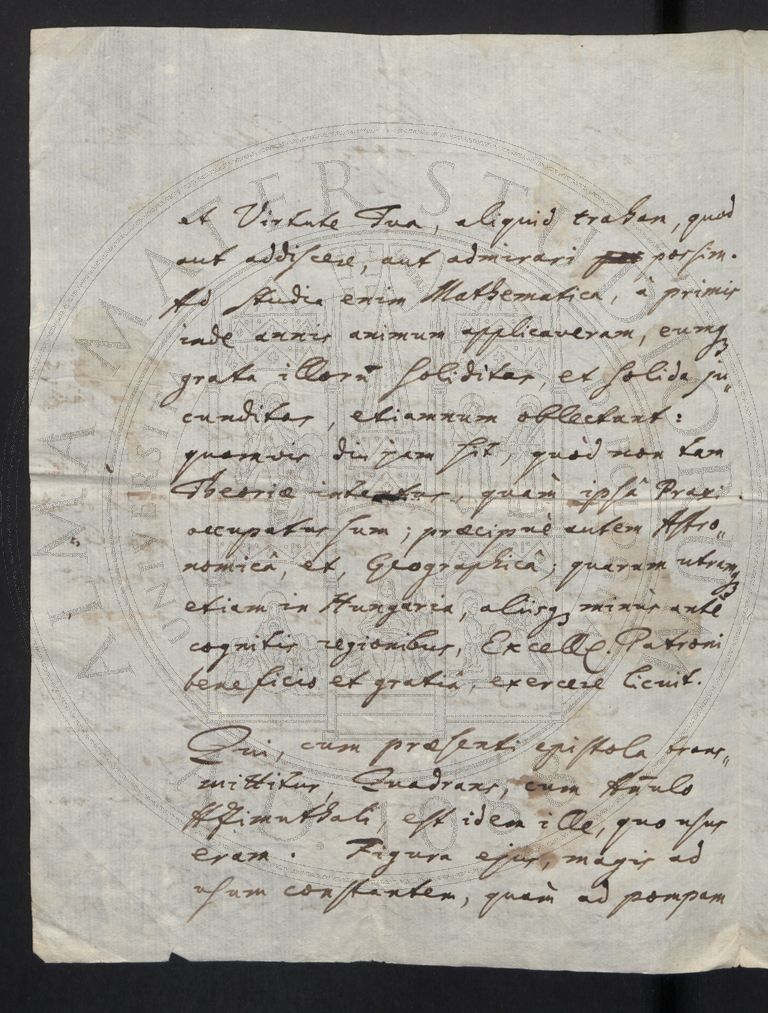 et Virtute Tua, aliquid traham, quod
aut addiscere, aut admirari possim.
Ad studia enim Mathematica, à primis
inde annis animum applicaveram, eumq₃
grata illorũ soliditas, et solida ju„
cunditas, etiamnum oblectant:
quamvis diu jam sit, quòd non tam
Theoriæ intentus, quàm ipsâ Praxi
occupatus sum; præcipuè autem Astro„
nomicâ, et, Geographicâ; quarum utramq₃
etiam in Hungaria, aliisq₃ minùs antè
cognitis regionibus, Excell. Patroni
beneficio et gratiâ, exercere licuit.
Qui, cum præsenti epistola trans„
mittitur, Quadrans, cum Añulo
Azimuthali, est idem ille, quo usus
eram. Figura ejus, magis ad
usum constantem, quàm ad pompam
ALMA MATER STUDIORUM
UNIVERSI
A.D. 1088